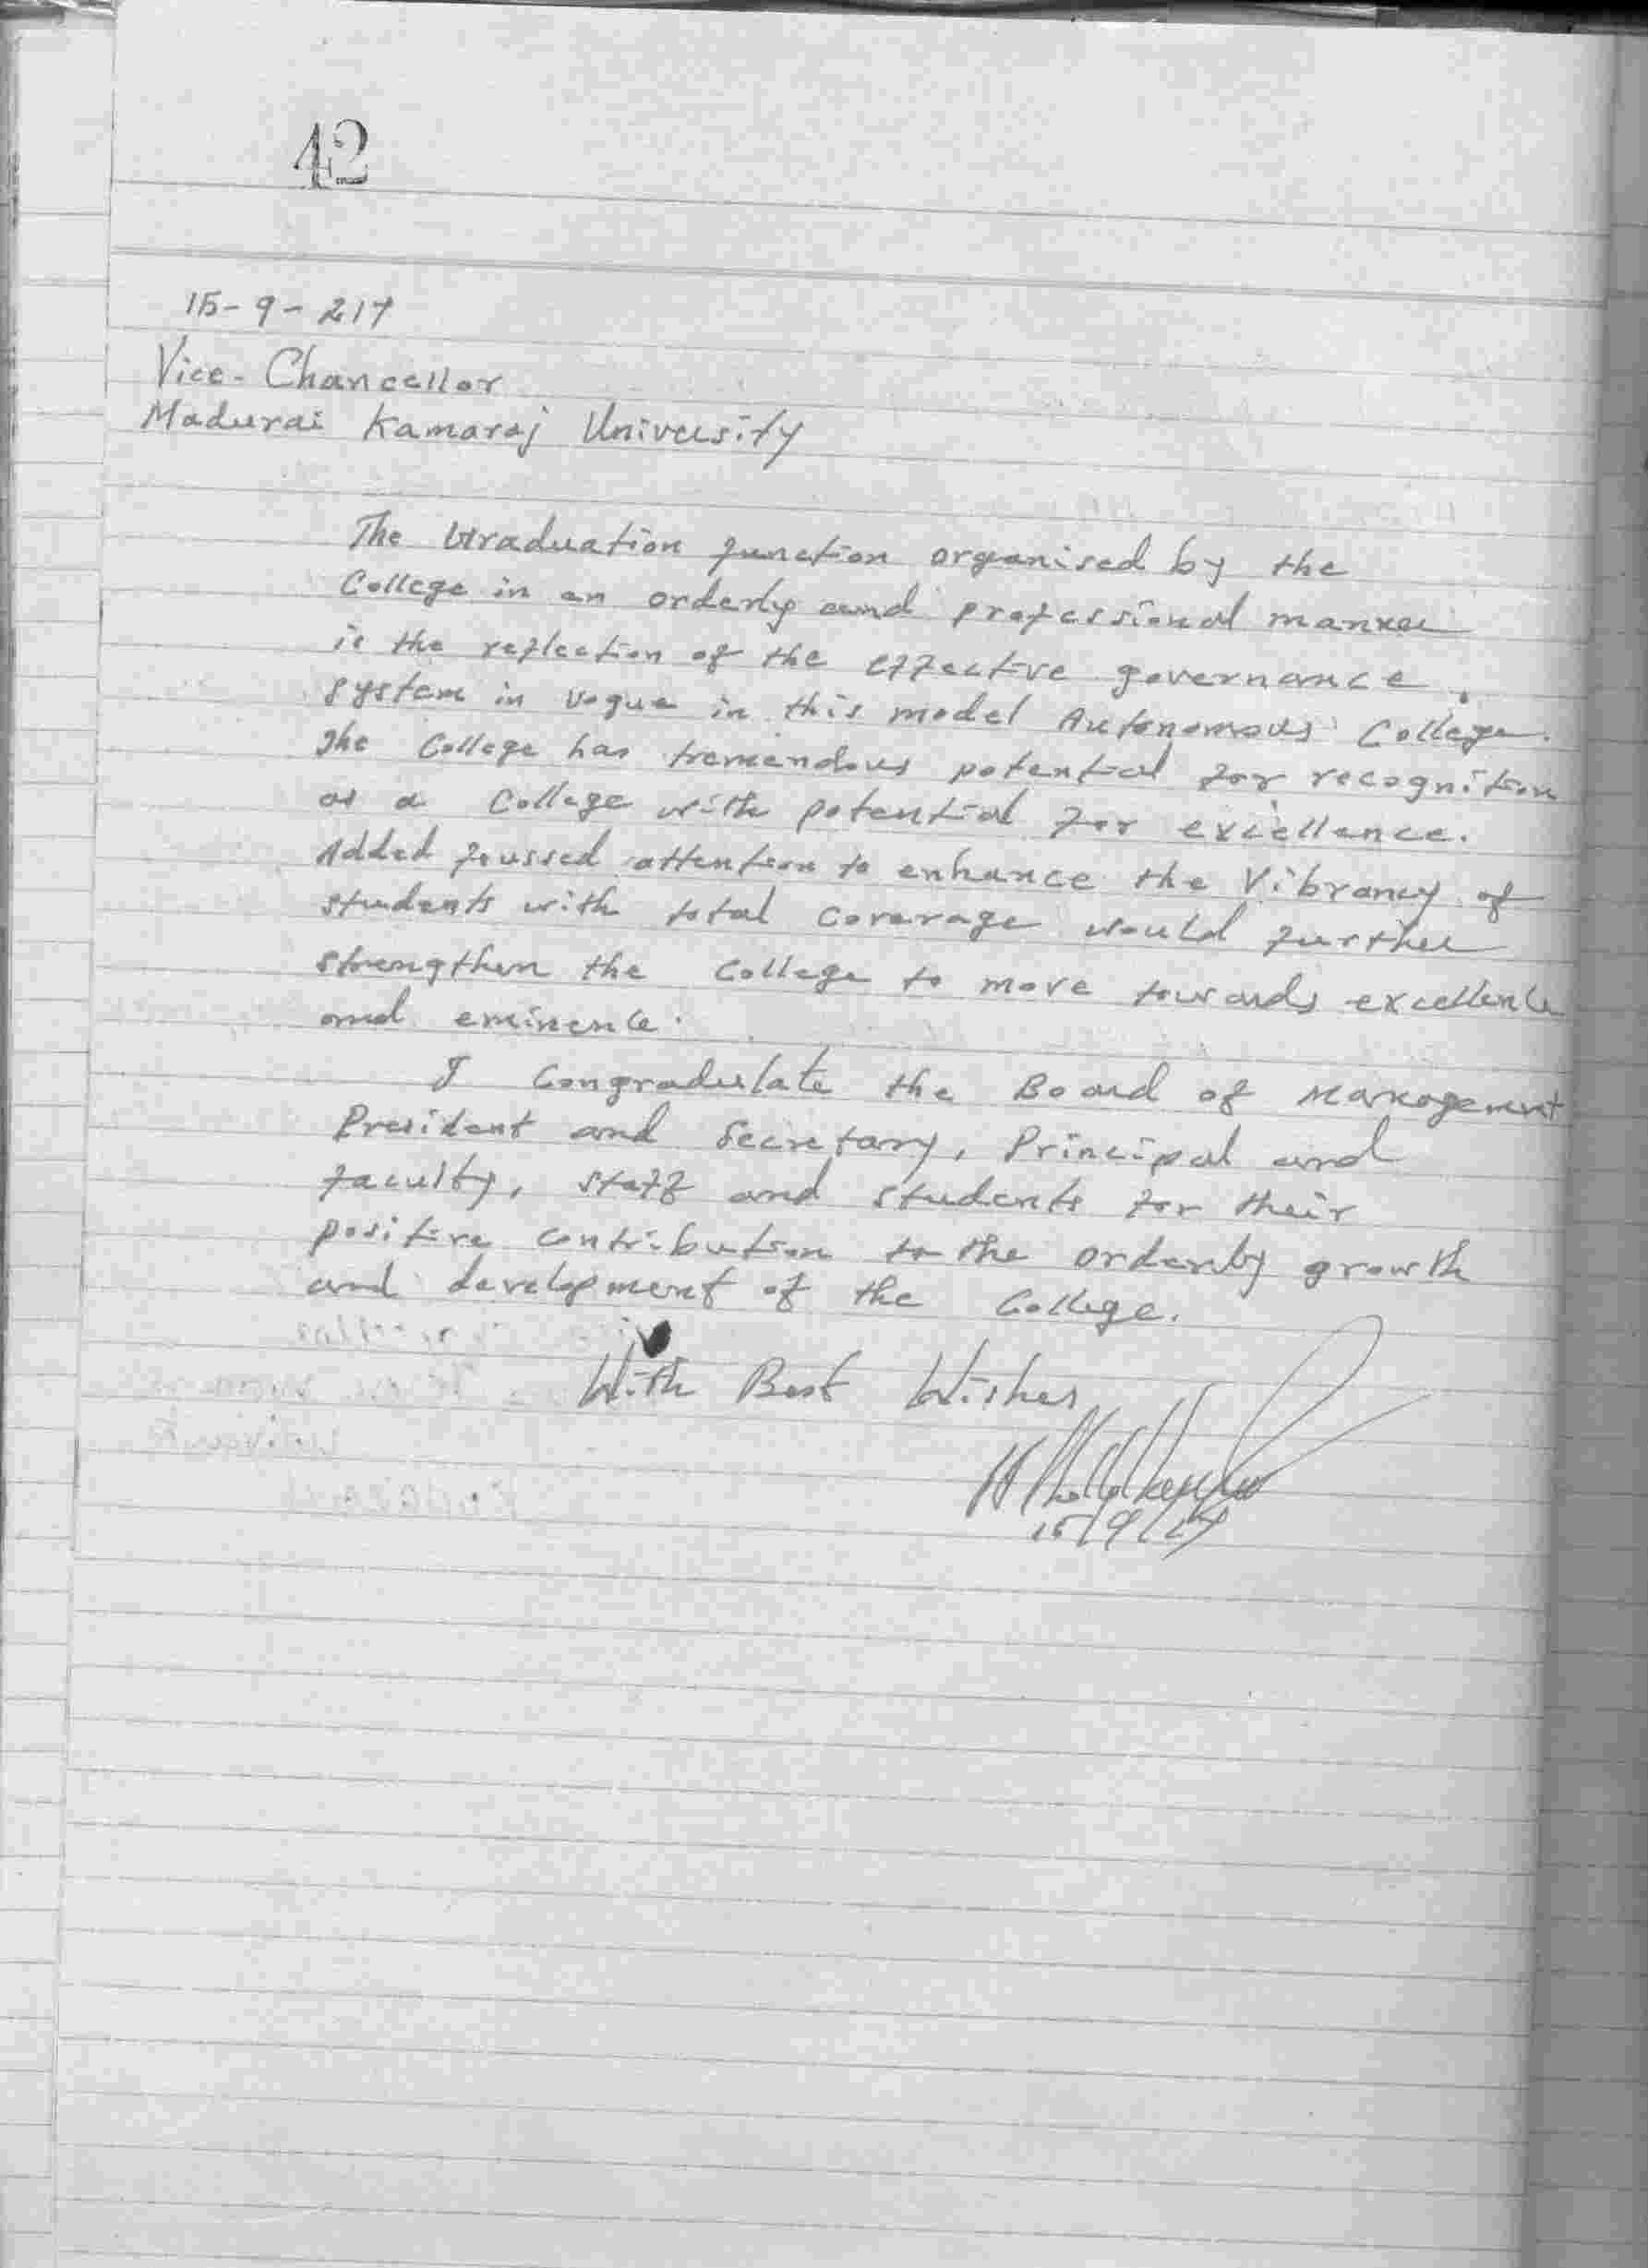 42
15-9-217
Vice-Chancellor
Madurai Kamaraj University
The Graduation function organised by the
College in an orderly and professional manner
is the reflection of the effective governance
system in vogue in this model Autonomous College.
The College has tremendous potential for recognition
as a College with potential for excellence.
Added foussed attention to enhance the Vibrancy of
students with total coverage would further
strengthen the College to move towards excellence
and eminence.
I Congradulate the Board of Management
President and Secretary, Principal and
faculty, staff and students for their
positive contribution to the orderly growth
and development of the College.
With Best Wishes
15/9/17